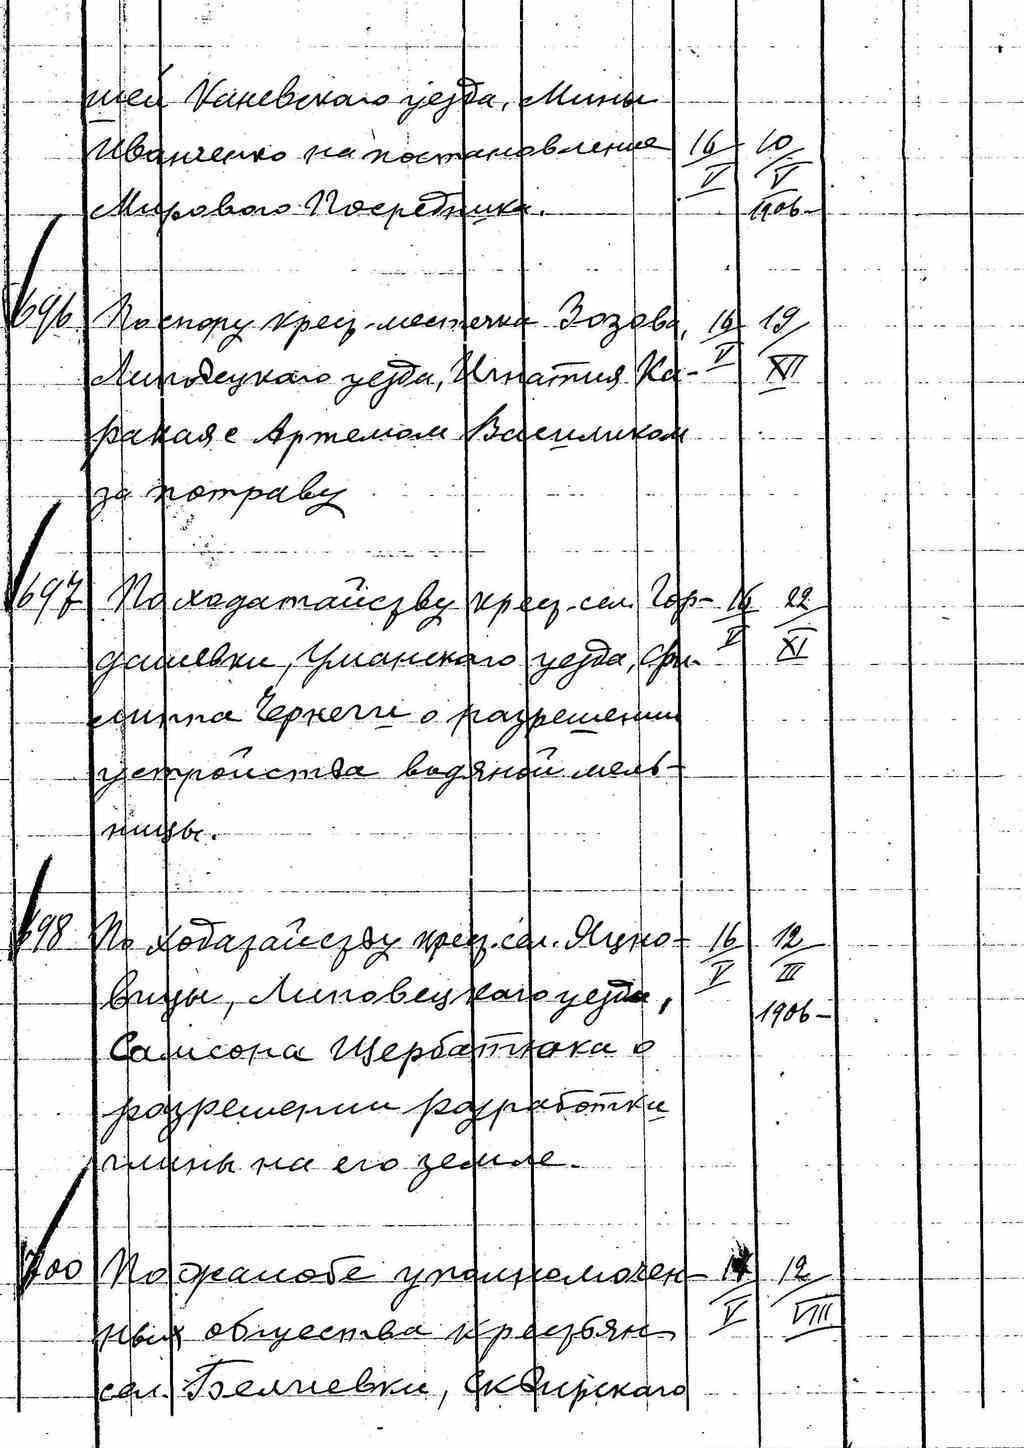 шей Каневскаго уезда, Мины
Иванченко на постановление 16/V 10/V
Мирового Посредника. 1906-
696 По спору крест. местечка Зозова, 16/V 19/XI
Липовецкаго уезда, Игнатия Ка-
ракая с Артемом Василиком
за потраву
697 По ходатайству крест. сел. Гор- 16/V 22/XI
дашевки, Уманскаго уезда, Фи-
липпа Чернеги о разрешении
устройства водяной мель-
ницы.
698 По ходатайству крест. сел. Яцко- 16/V 12/III
вицы, Липовецкаго уезда, 1906-
Самсона Щербатюка о
разрешении разработки
глины на его земле.
700 По жалобе уполномочен- 12/VIII
ных общества крестьян
сел. Белиевки, Сквирскаго